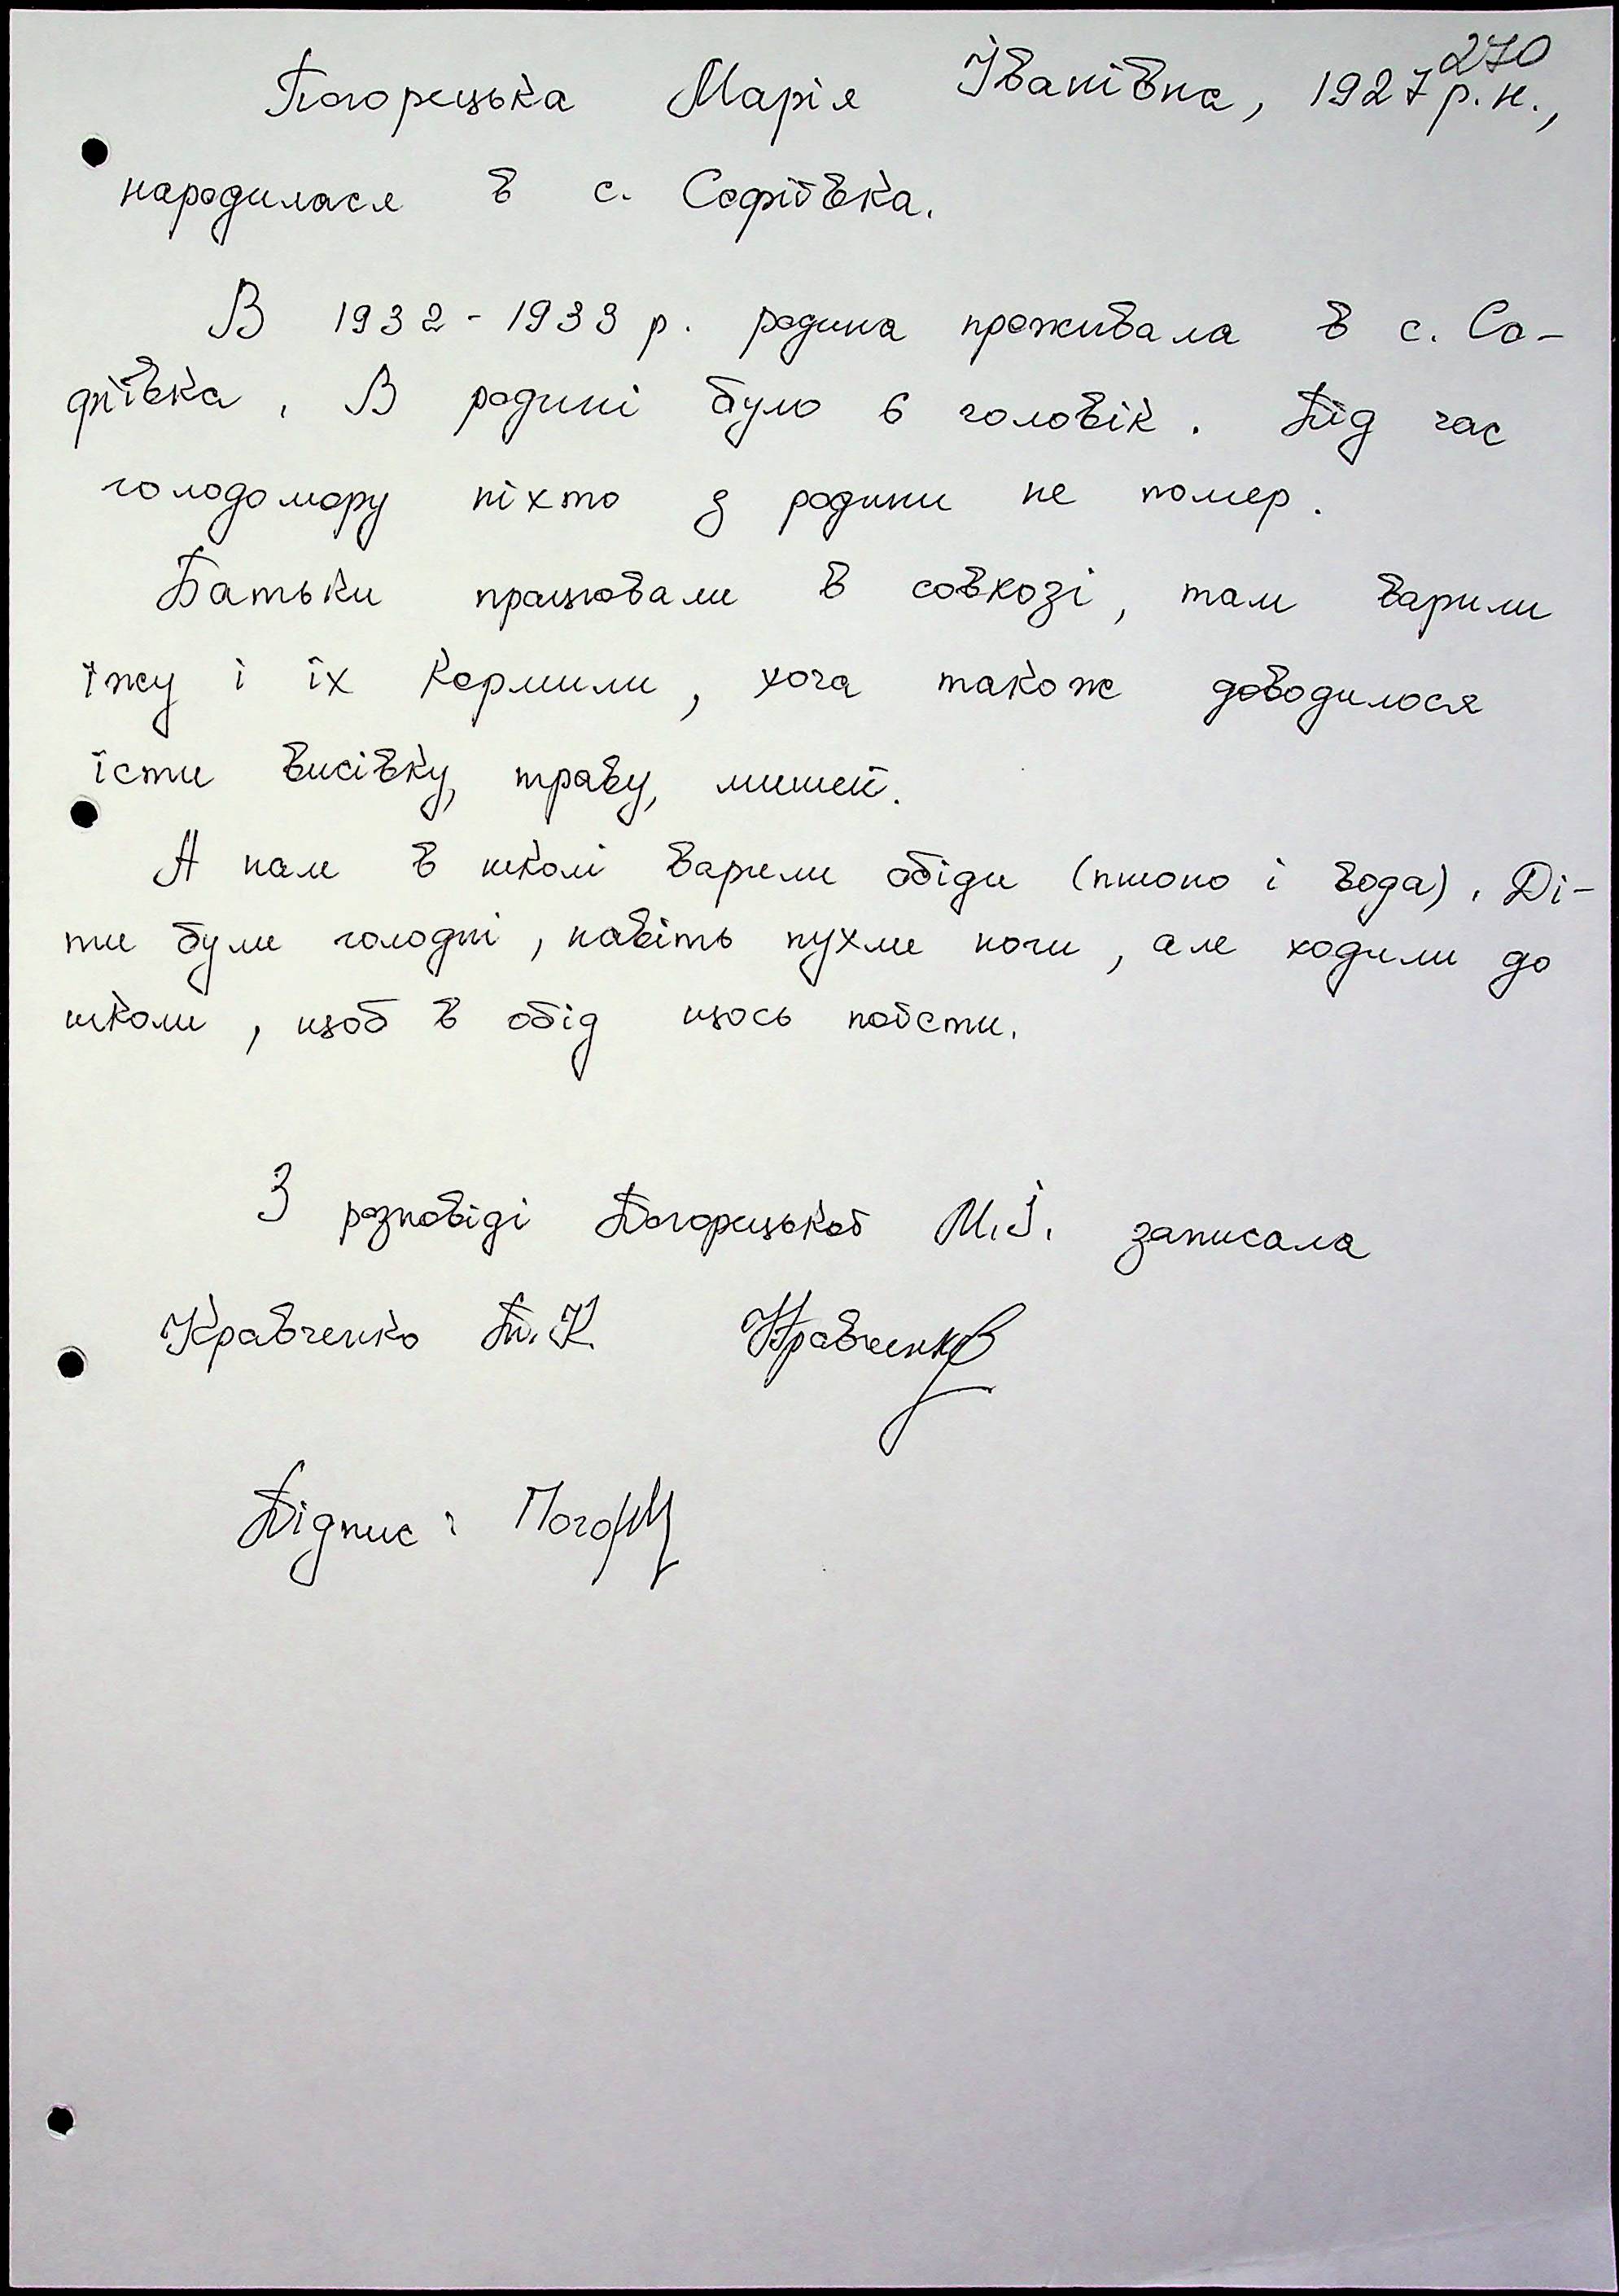 270
Погорецька Марія Іванівна, 1927 р.н.,
народилася в с. Софіївка.
В 1932-1933 р. родина проживала в с. Со-
фіївка. В родині було 6 чоловік. Під час
голодомору ніхто з родини не помер.
Батьки працювали в совкозі, там варили
їжу і їх кормили, хоча також доводилося
їсти висівку, траву, мишей.
А нам в школі варили обіди (пшоно і вода). Ді-
ти були голодні, навіть пухли ноги, але ходили до
школи, щоб в обід щось поїсти.
З розповіді Погорецької М.І. записала
Кравченко П.К. Кравченко
Підпис: Погор